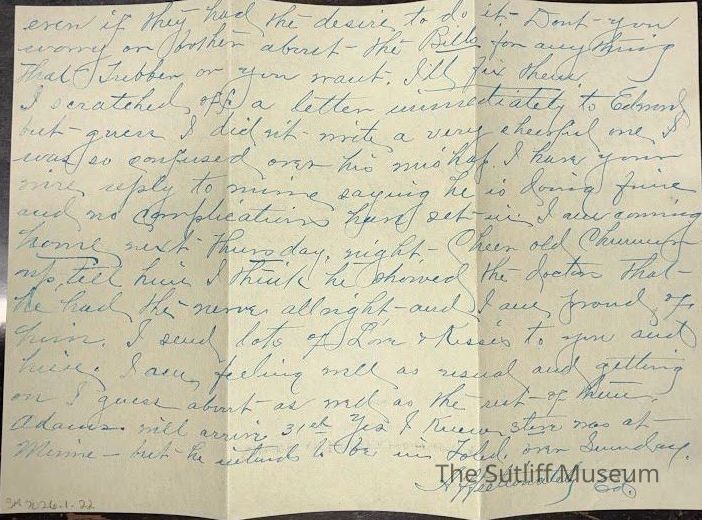 even if they had the desire to do it. Dont you
worry or bother about the Bills for anything
that Tubber or you want. I'll fix them
I scratched off a letter immediately to Edmond
but guess I did n't write a very cheerful one I
was so confused over his mishap. I have your
nice reply to mine saying he is doing fine
and no complications have set in. I am coming
home next Thursday, night. Cheer old Chummy
up, tell him I think he showed the doctor that
he had the nerve allright and I am proud of
him. I send lots of Love & Kisses to you and
him. I am feeling well as usual and getting
on I guess about as well as the rest of them.
Adams will arrive 31st Yes I knew was at
but he intends to be in over Sunday.
Affectionately Ed.
The Sutliff Museum
SM 2026.1.22